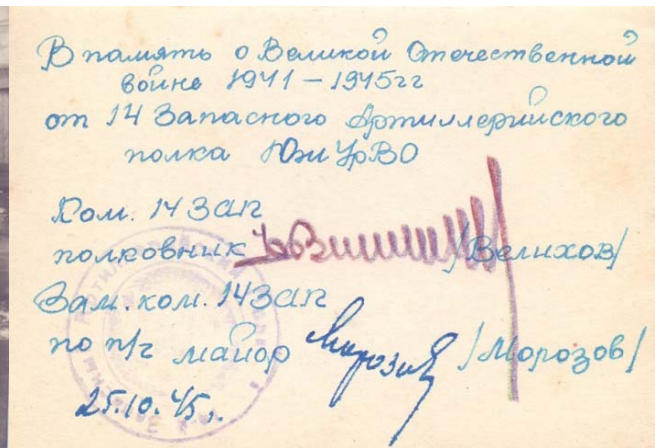 В память о Великой Отечественной
войне 1941 – 1945гг
от 14 Запасного Артиллерийского
полка ЮжУрВО
Ком. 14 ЗАП
полковник /Велихов/
Зам. ком. 14ЗАП
по п/ч майор Морозов /Морозов/
25.10.45г.